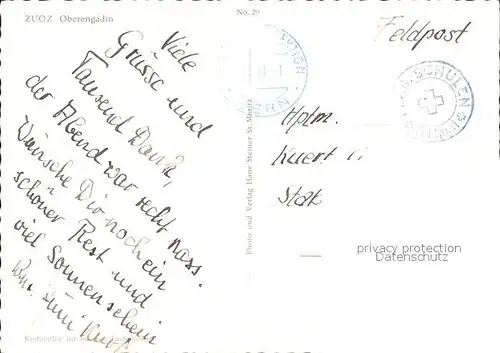 ZUOZ Oberengadin
No. 29
Feldpost
Viele
Grüsse und
Tausend Dank,
der Abend war recht nass.
Wünsche Dir noch ein
schöner Rest und
viel Sonnenschein
SCHULEN
Hptm.
Kuert
Stab
Photo und Verlag Hans Steiner St. Moritz
privacy protection
Datenschutz